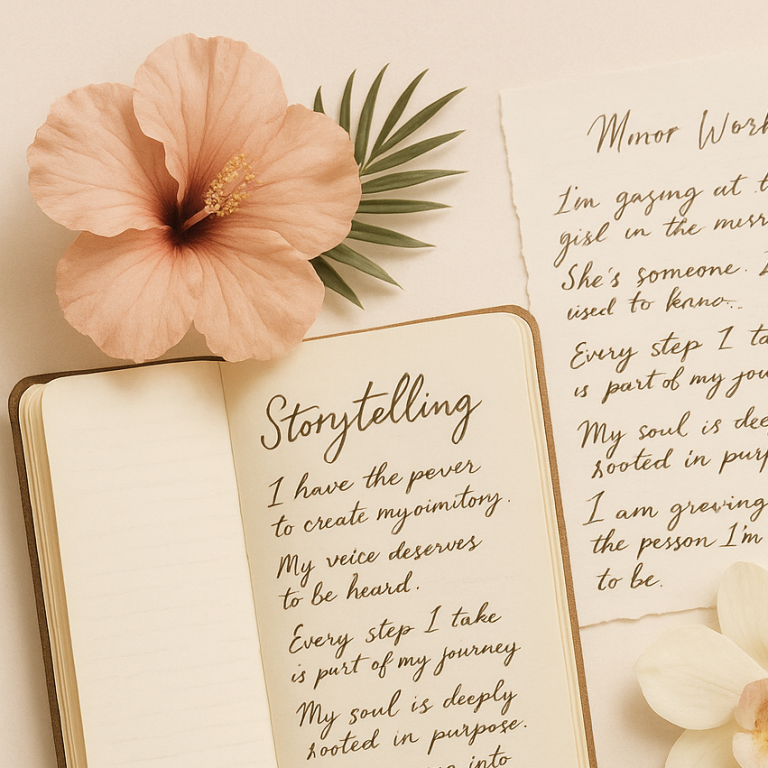 Storytelling
I have the pever
to create myoimitory.
My veice deserves
to be heard.
Every step I take
is purt of my journey
My soul is deeply
rooted in purpose.
into
Minor Work
I'm gasmg at t
gisl in the mirr
She's someone. I
used to knno..
Every step I ta
is part of my jou
My soul is dee
sooted in purp
I am greving
the pesson I'm
to be.